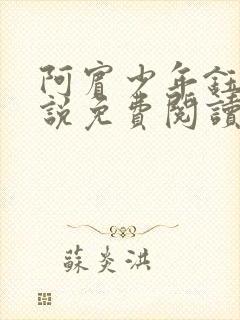 阿賓少年鈺
說免費閱讀
蘇炎洪